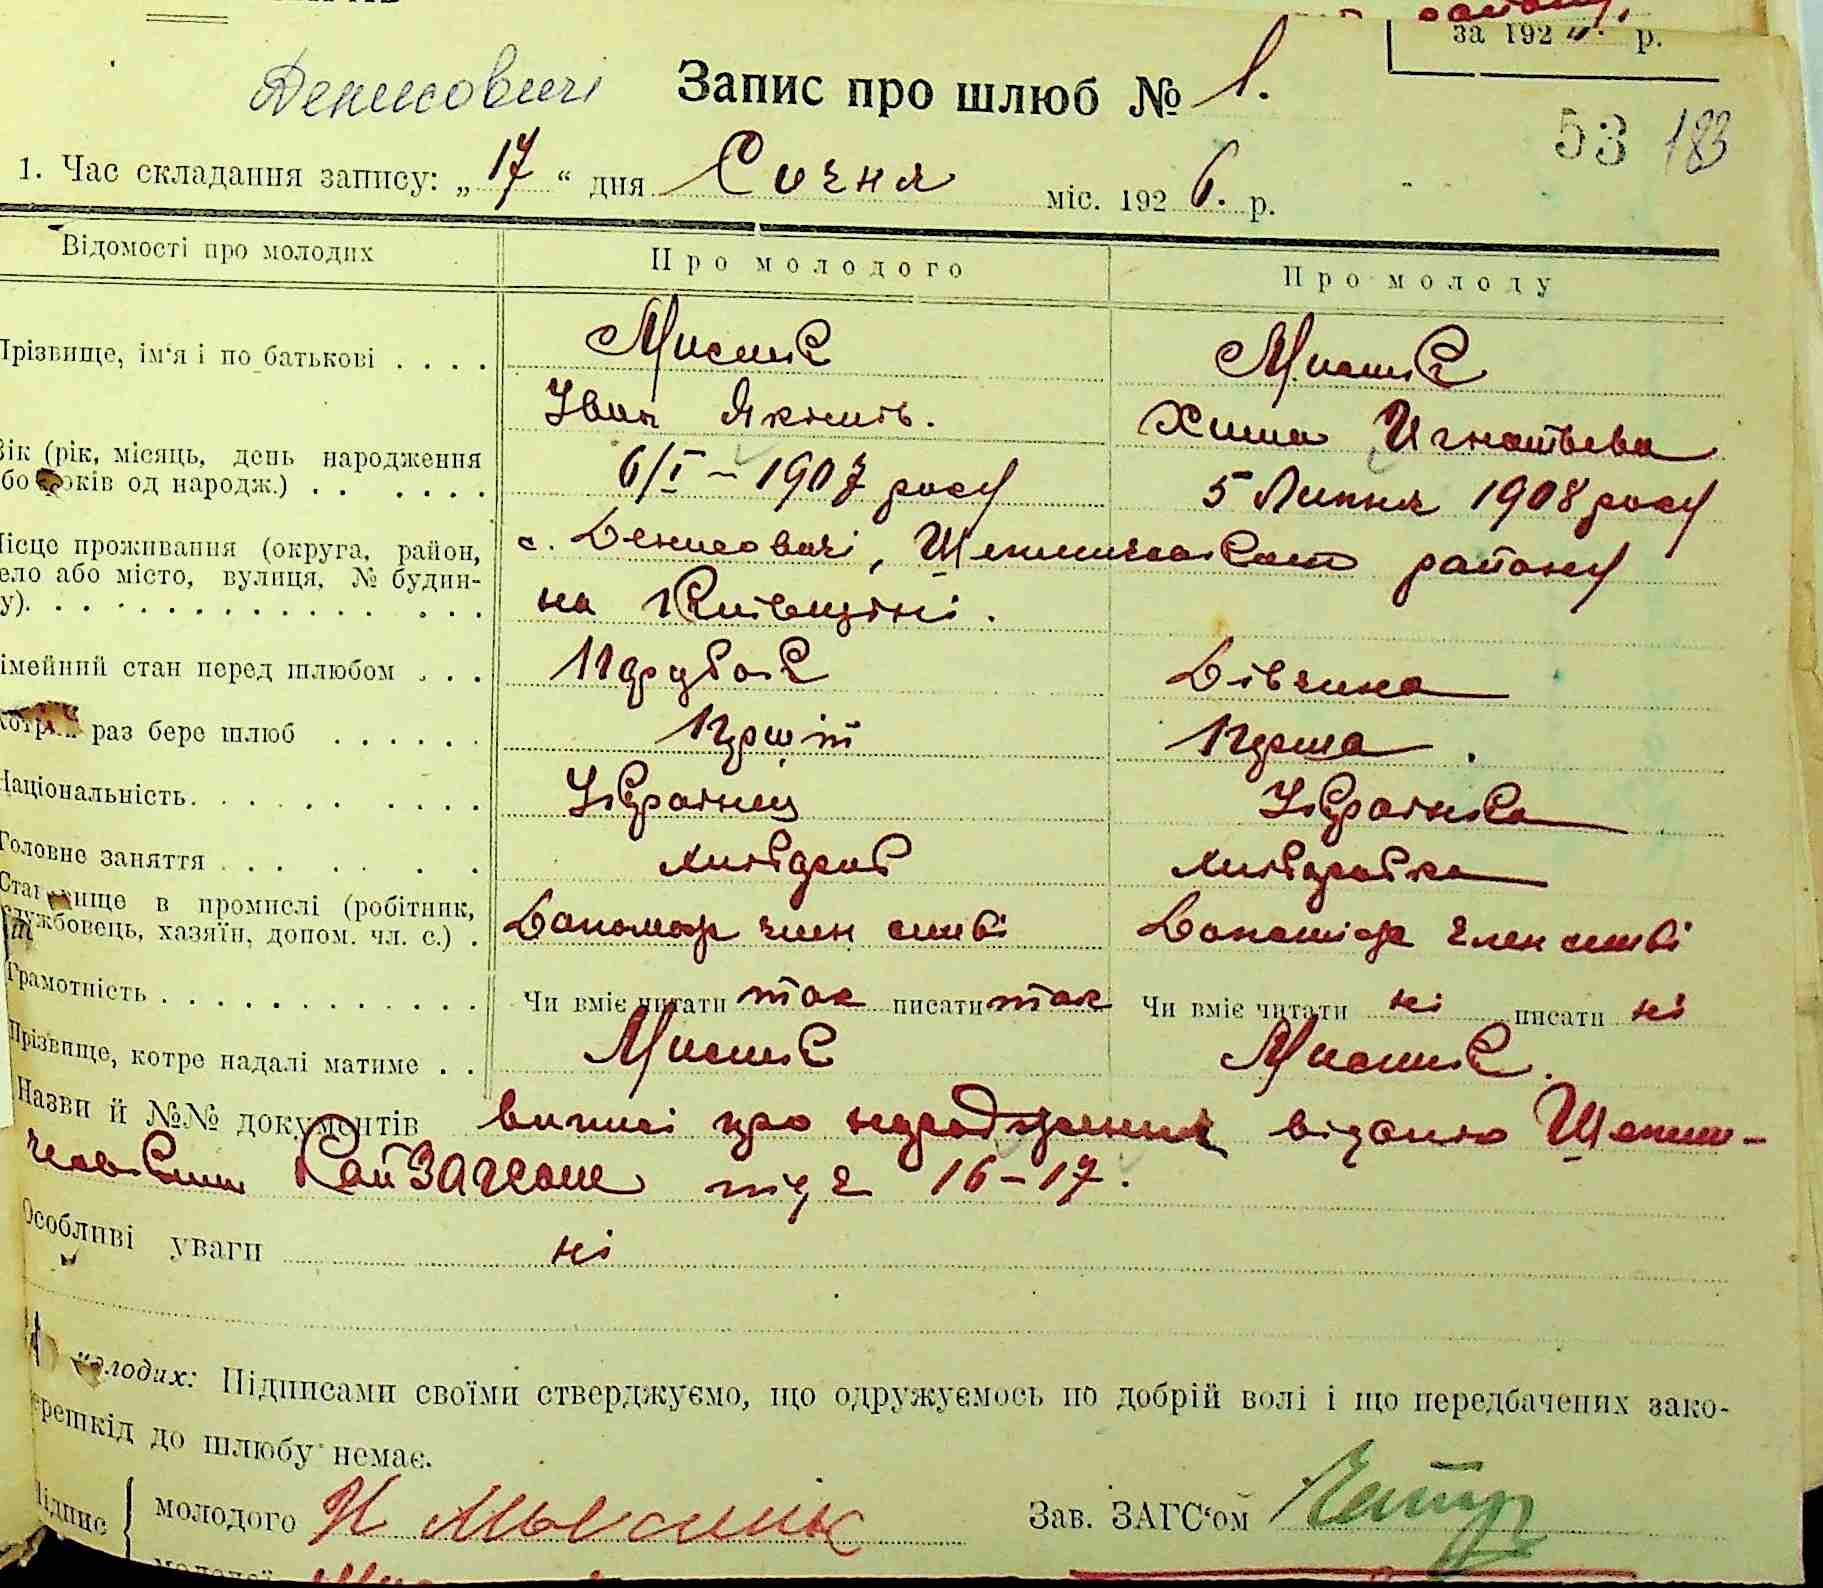 за 192 р.
Денисовичі Запис про шлюб № 1.
53 183
1. Час складання запису: „17“ дня Січня міс. 1926. р.
Відомості про молодих Про молодого Про молоду
Прізвище, ім‘я і по батькові . . . . Мисник Мисник
Іван Якимів. Химa Игнатьева
Вік (рік, місяць, день народження 6/I – 1907 року 5 Липня 1908 року
або років од народж.) . . . . . .
Місце проживання (округа, район, с. Денисовичі, Шепеличського району
село або місто, вулиця, № будин-
у). . . . на Київщині.
сімейний стан перед шлюбом . . . Парубок Дівчина
котрий раз бере шлюб . . . . . . Перший Перша.
Національність. . . . . . . . . Українець Українка
Головне заняття . . . . . хлібороб хліборобка
Становище в промислі (робітник,
службовець, хазяїн, допом. чл. с.) . Допомаг член сімьі Допоміж член сімьі
Грамотність . . . . . . . . . . . Чи вміє читати так писати так Чи вміє читати ні писати ні
Прізвище, котре надалі матиме . . Мисник Мисник.
Назви й №№ документів виписі про народження видано Шепели-
чевським РайЗАГСом під № 16–17.
Особливі уваги ні
молодих: Підписами своїми стверджуємо, що одружуємось по добрій волі і що передбачених зако-
перешкід до шлюбу немає.
Підпис { молодого И Мысник Зав. ЗАГС‘ом
молодої